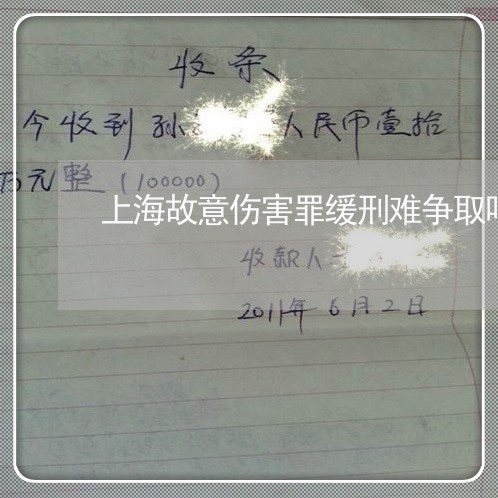 收条
今收到孙 人民币壹拾
万元整(100000)
上海故意伤害罪缓刑难争取
收款人
2011年6月2日